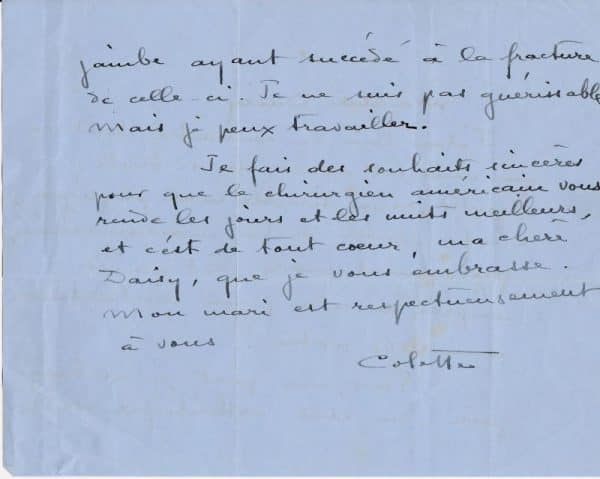 jambe ayant succédé à la fracture
de celle-ci. Je ne suis pas guérissable
Mais je peux travailler.
Je fais des souhaits sincères
pour que le chirurgien américain vous
rende les jours et les nuits meilleurs,
et c'est de tout cœur, ma chère
Daisy, que je vous embrasse.
Mon mari est respectueusement
à vous
Colette